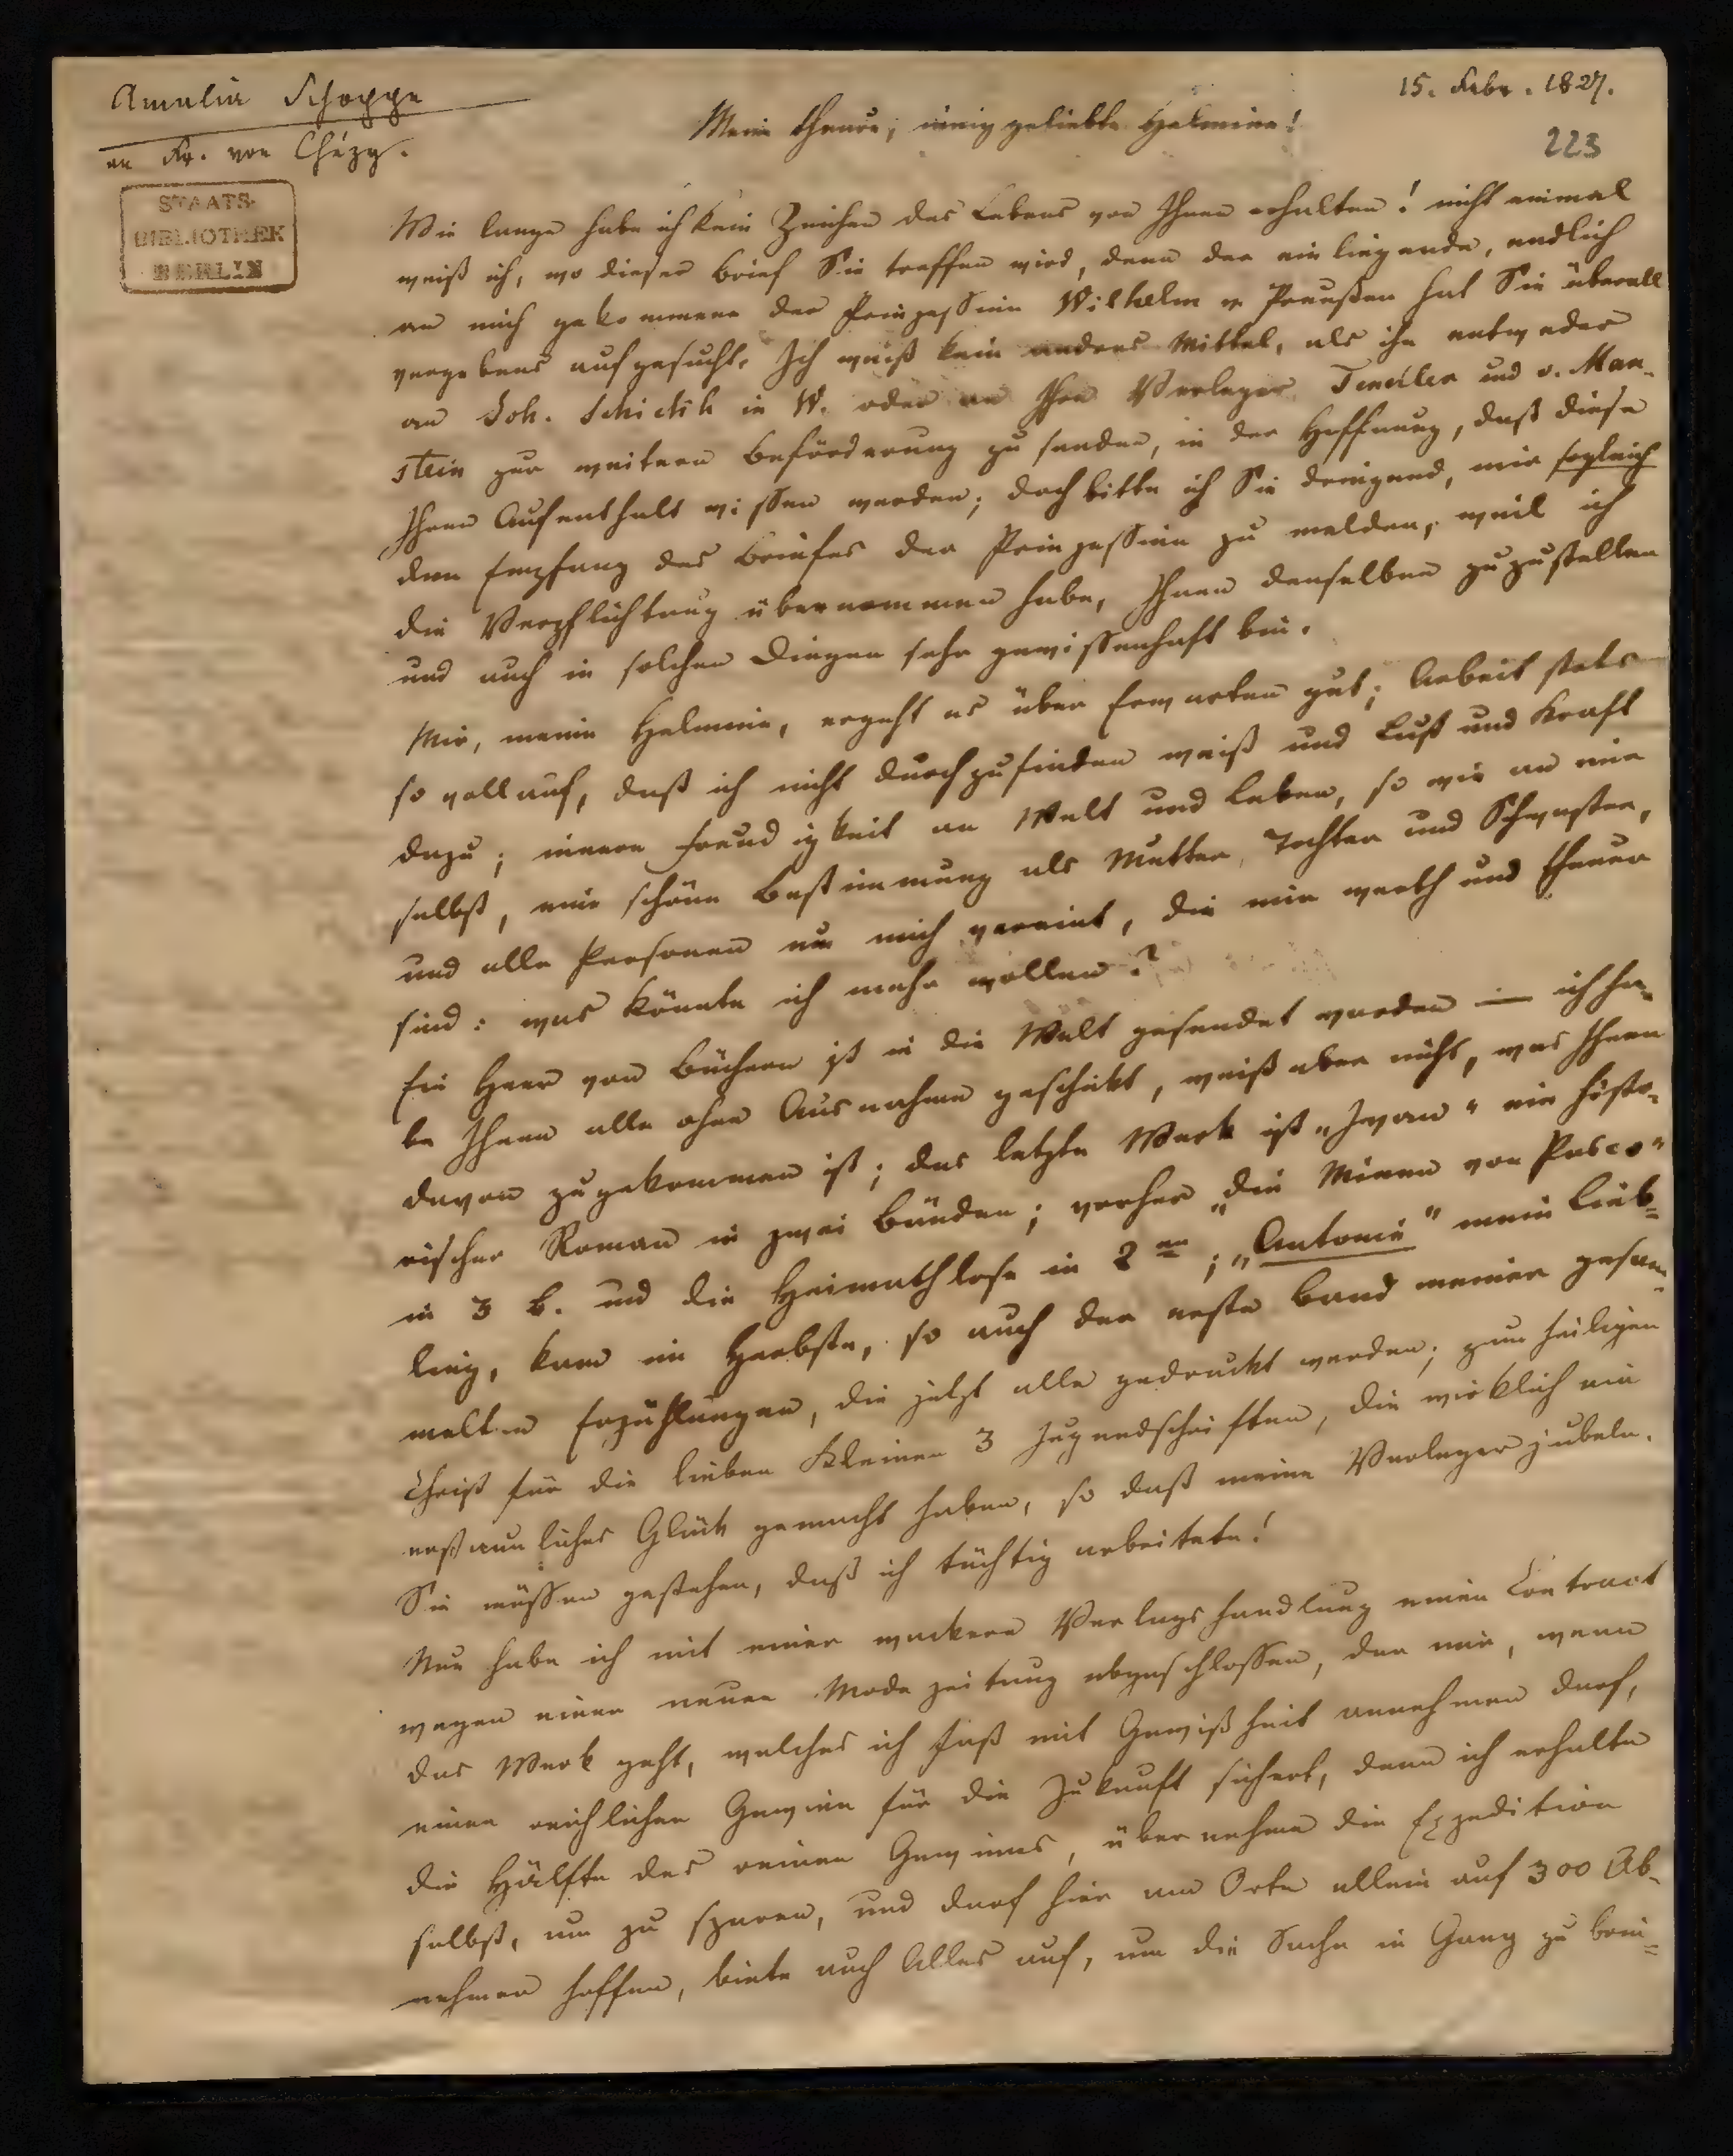 Amalia Schoppe
an Fr. von Chézy.
15. Febr. 1827.
223
STAATS-
BIBLIOTHEK
BERLIN
Meine theure, innig geliebte Helmina!
Wie lange habe ich kein Zeichen des Lebens von Ihnen erhalten! nicht einmal
weiß ich, wo dieser Brief Sie treffen wird, denn der einliegende, endlich
an mich gekommene der Prinzessinn Wilhelm v Preußen hat Sie überall
vergebens aufgesucht. Ich weiß kein anderes Mittel, als ihn entweder
an Joh. Schickh in W. oder an Ihre Verleger Tendler und v. Man-
stein zur weitern Beförderung zu senden, in der Hoffnung, daß diese
Ihren Aufenthalt wissen werden; doch bitte ich Sie dringend, mir sogleich
den Empfang des Briefes der Prinzessinn zu melden, weil ich
die Verpflichtung übernommen habe, Ihnen denselben zuzustellen
und auch in solchen Dingen sehr gewissenhaft bin.
Mir, meine Helmina, ergeht es über Erwarten gut; Arbeit stets
so vollauf, daß ich nicht durchzufinden weiß und Lust und Kraft
dazu; innere Freudigkeit an Welt und Leben, so wie an mir
selbst, eine schöne Bestimmung als Mutter, Tochter und Schwester,
und alle Personen um mich vereint, die mir werth und theuer
sind: was könnte ich mehr wollen?
Ein Heer von Büchern ist in die Welt gesendet worden — ich ha-
be Ihnen alle ohne Ausnahme geschickt, weiß aber nicht, was Ihnen
davon zugekommen ist; das letzte Werk ist „Iwan" ein histo-
rischer Roman in zwei Bänden; vorher „die Minen von Pasco"
in 3 B. und die Heimathlose in 2en; „Antonie" mein Lieb-
ling, kam im Herbste, so auch der erste Band meiner gesam-
melten Erzählungen, die jetzt alle gedruckt werden; zum heiligen
Christ für die lieben Kleinen 3 Jugendschriften, die wirklich ein
erstaunliches Glück gemacht haben, so daß meine Verleger jubeln.
Sie müssen gestehen, daß ich tüchtig arbeitete!
Nun habe ich mit einer wackern Verlagshandlung einen Contract
wegen einer neuen Modezeitung abgeschlossen, der mir, wenn
das Werk geht, welches ich fast mit Gewißheit annehmen darf,
einen reichlichen Gewinn für die Zukunft sichert, denn ich erhalte
die Hälfte des reinen Gewinns, übernehme die Expedition
selbst, um zu sparen, und darf hier am Orte allein auf 300 Ab-
nehmer hoffen, biete auch Alles auf, um die Sache in Gang zu brin-